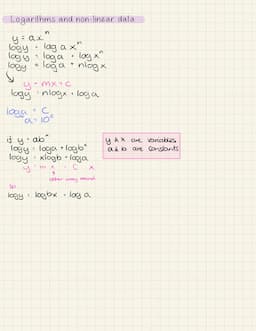 Logarithms and non-linear data
y = axⁿ
logy = log a xⁿ
logy = loga + logxⁿ
logy = loga + nlogx
y = mx + c
logy = nlogx + loga
loga = C
a = 10ᶜ
if y = abˣ
logy = loga + logbˣ
logy = xlogb + loga
y = m x + c x
other way round
so
logy = logbx + log a
y & x are variables
a & b are constants